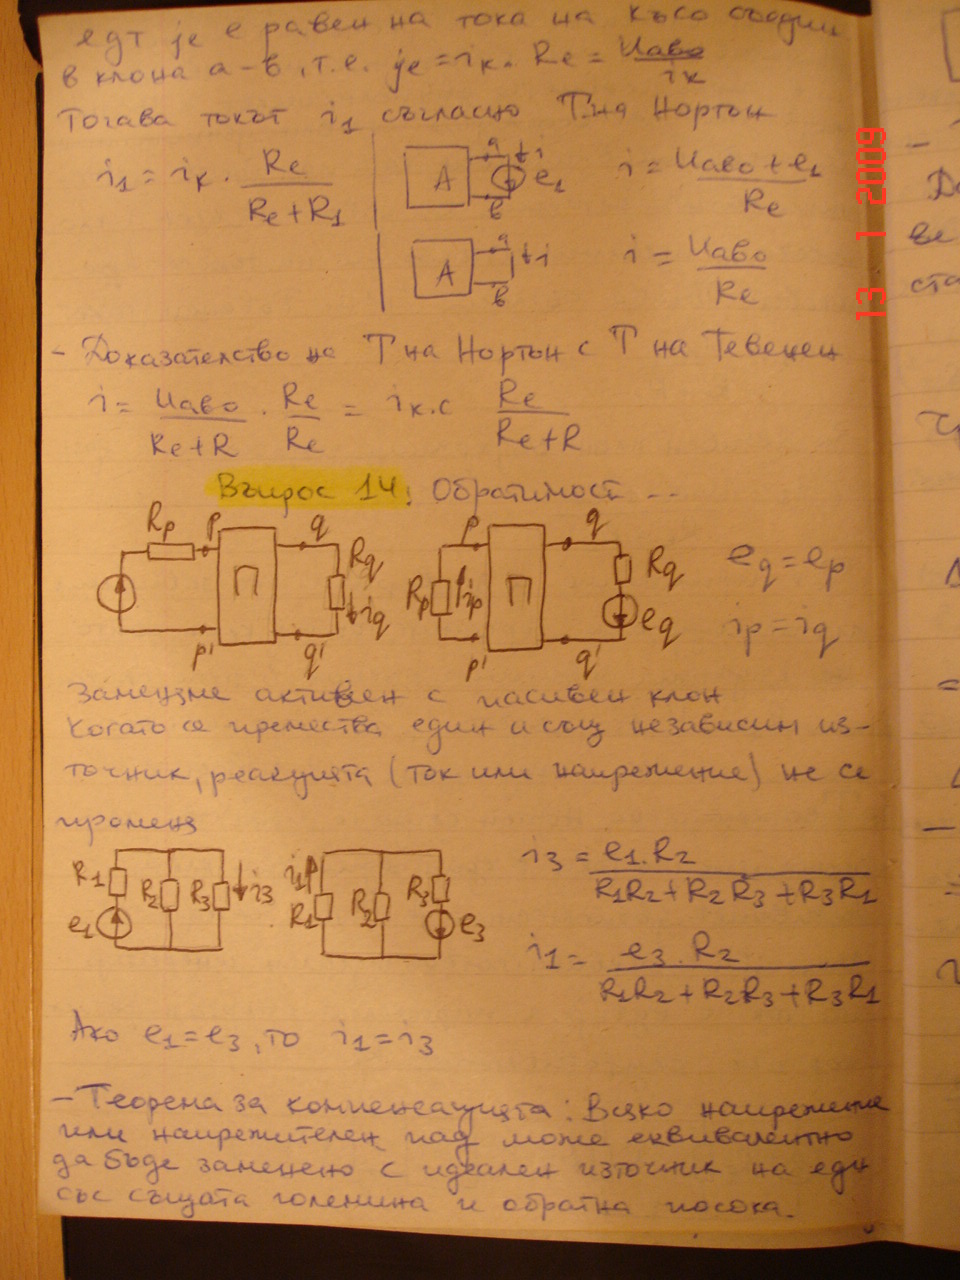 едт jе е равен на тока на късо съедин
в клона а-в, т.е. jе = iк. Rе = Uаво/iк
Тогава токът i1 съгласно Т. на Нортън
i1 = iк . Rе/(Rе+R1)
А а в i e1
i = (Uаво + e1)/Rе
А а в i
i = Uаво/Rе
- Доказателство на Т на Нортън с Т на Тевенен
i = Uаво/(Rе+R) . Rе/Rе = iк.с Rе/(Rе+R)
Въпрос 14. Обратимост ...
Rp p П q Rq iq p' q'
Rp ip p П q Rq eq p' q'
eq = ep
ip = iq
Заменяме активен с пасивен клон
Когато се премества един и същ независим из-
точник, реакцията (ток или напрежение) не се
променя
R1 R2 R3 i3 e1
i1 R1 R2 R3 e3
i3 = e1.R2/(R1R2+R2R3+R3R1)
i1 = e3.R2/(R1R2+R2R3+R3R1)
Ако e1=e3, то i1=i3
- Теорема за компенсацията: Всяко напрежение
или напрежителен пад може еквивалентно
да бъде заменено с идеален източник на едн
със същата големина и обратна посока.
13 1 2009